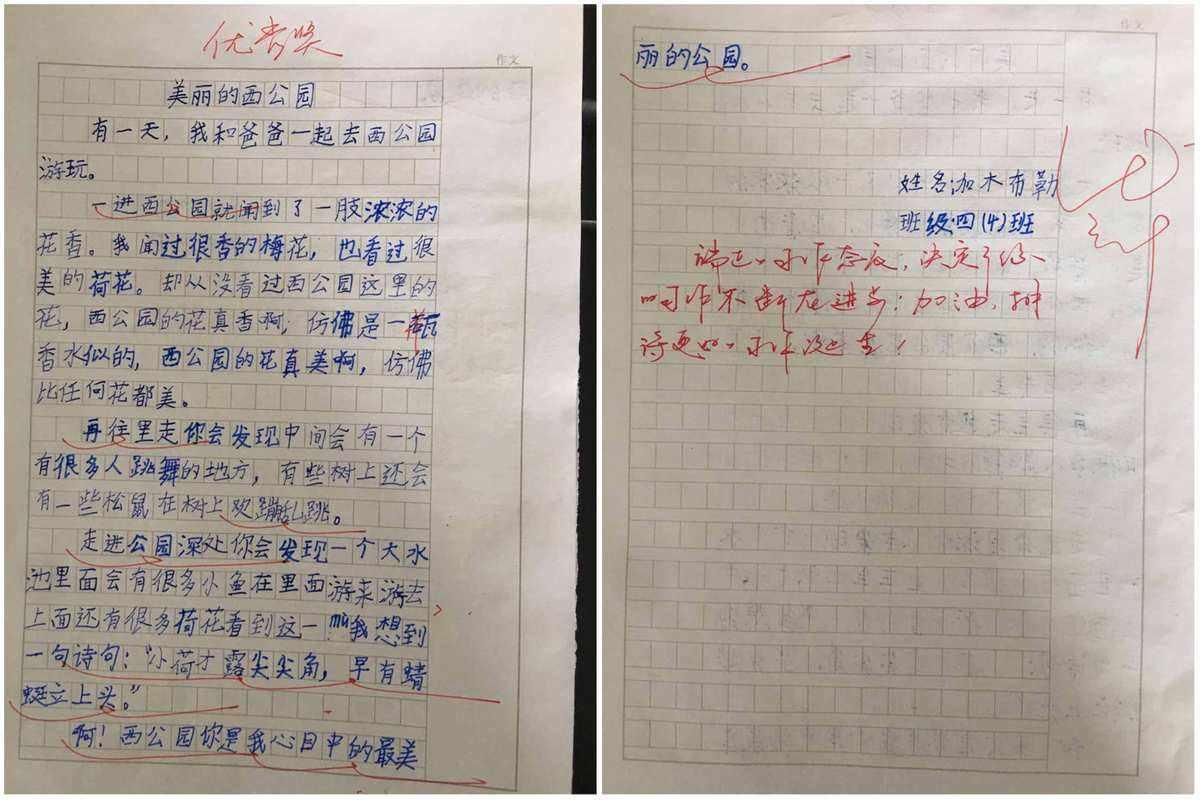 优秀奖
作文
美丽的西公园
有一天，我和爸爸一起去西公园
游玩。
一进西公园就闻到了一肢浓浓的
花香。我闻过很香的梅花，也看过很
美的荷花。却从没看过西公园这里的
花，西公园的花真香啊，仿佛是一瓶
香水似的，西公园的花真美啊，仿佛
比任何花都美。
再往里走你会发现中间会有一个
有很多人跳舞的地方，有些树上还会
有一些松鼠在树上欢蹦乱跳。
走进公园深处你会发现一个大水
池里面会有很多小鱼在里面游来游去
上面还有很多荷花看到这一mù我想到
一句诗句：“小荷才露尖尖角，早有蜻
蜓立上头。”
啊！西公园你是我心目中的最美
丽的公园。
作文
姓名:加木布勒
班级:四(4)班
端正的习作态度，决定了你
的习作不断在进步：加油，期
待更的习作诞生！